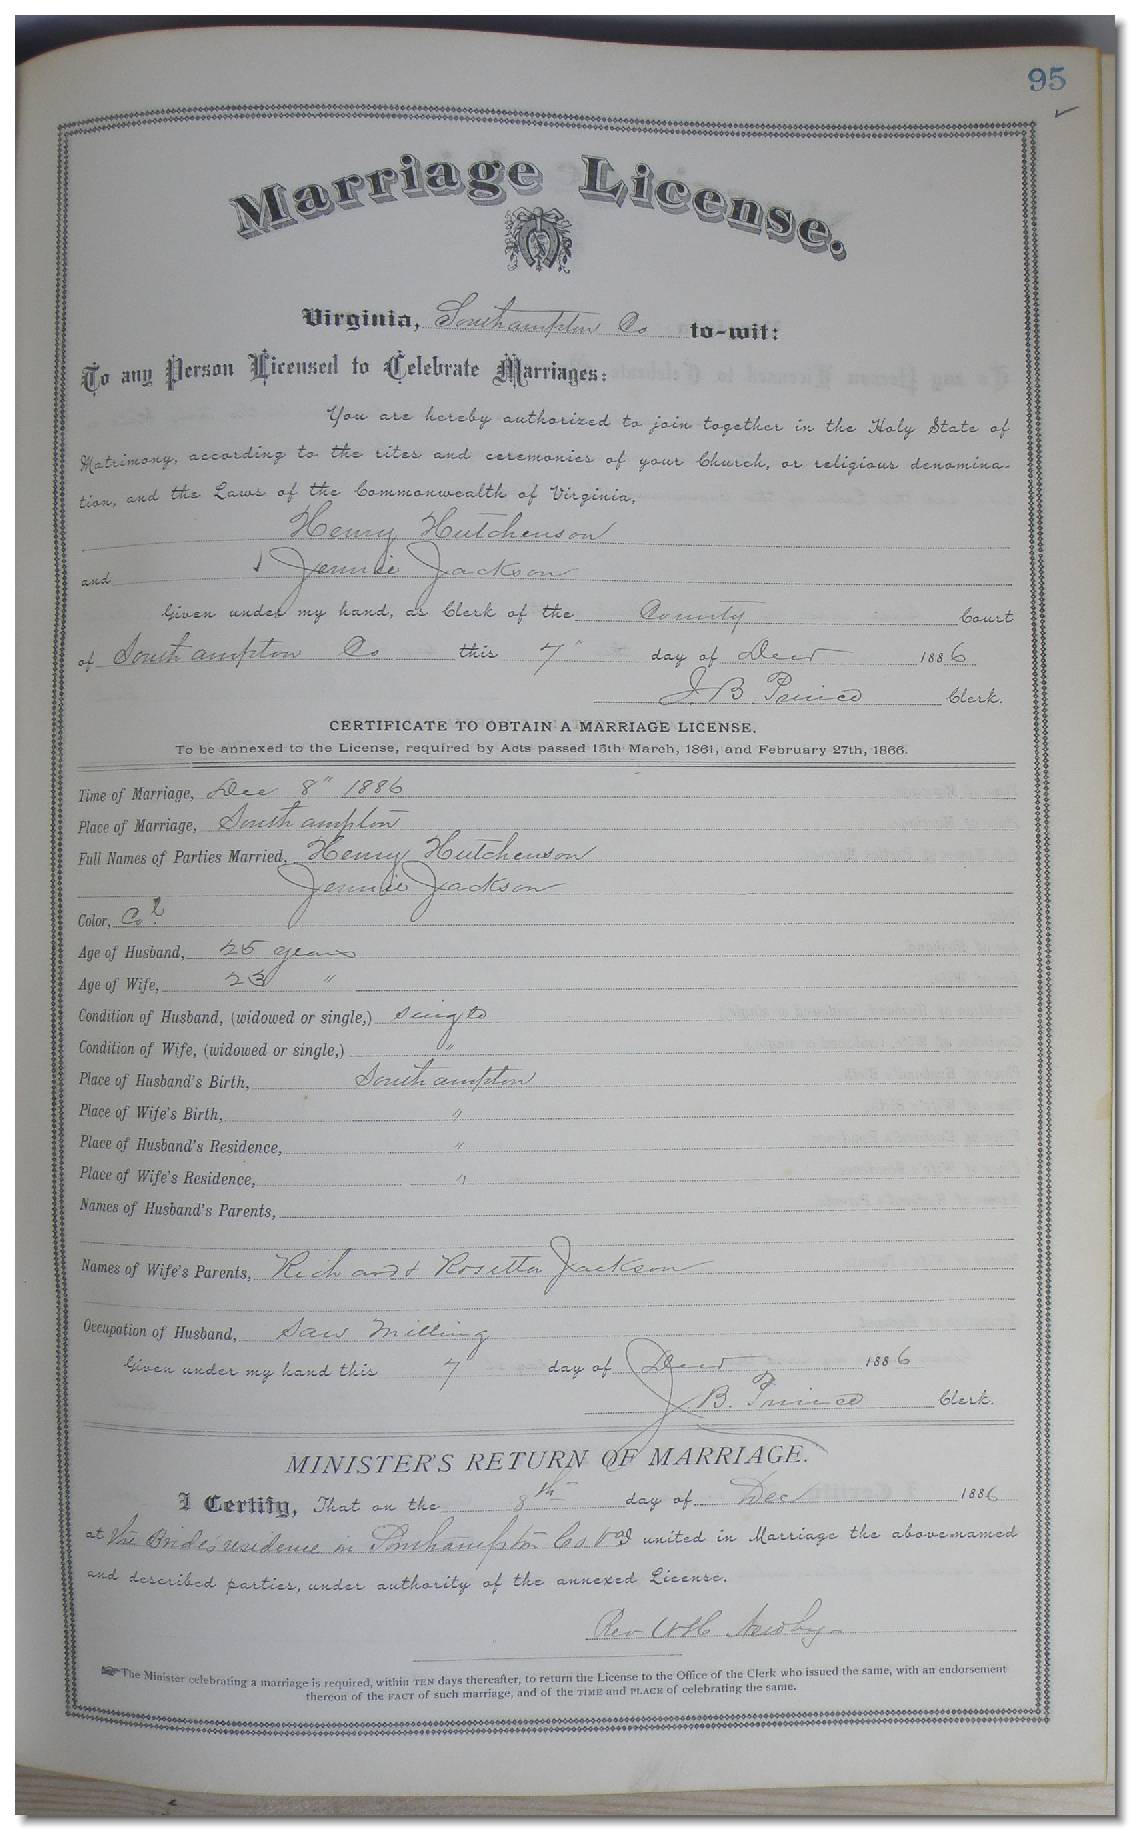 95
Marriage License.
Virginia, Southampton Co to-wit:
To any Person Licensed to Celebrate Marriages:
You are hereby authorized to join together in the Holy State of
Matrimony, according to the rites and ceremonies of your Church, or religious denomina-
tion, and the Laws of the Commonwealth of Virginia,
Henry Hutchenson
and Jennie Jackson
Given under my hand, as Clerk of the County Court
of Southampton Co this 7" day of Decr 1886
J. B. Prince Clerk.
CERTIFICATE TO OBTAIN A MARRIAGE LICENSE.
To be annexed to the License, required by Acts passed 15th March, 1861, and February 27th, 1866.
Time of Marriage, Dec 8" 1886
Place of Marriage, Southampton
Full Names of Parties Married, Henry Hutchenson
Jennie Jackson
Color, Cold
Age of Husband, 25 years
Age of Wife, 23 "
Condition of Husband, (widowed or single,) single
Condition of Wife, (widowed or single,) "
Place of Husband's Birth, Southampton
Place of Wife's Birth, "
Place of Husband's Residence, "
Place of Wife's Residence, "
Names of Husband's Parents,
Names of Wife's Parents, Rich and & Rosetta Jackson
Occupation of Husband, Saw Milling
Given under my hand this 7 day of Decr 1886
J. B. Prince Clerk.
MINISTER'S RETURN OF MARRIAGE.
I Certify, That on the 8th day of Dec 1886
at the Bride's residence in Southampton Co Va I united in Marriage the above-named
and described parties, under authority of the annexed License.
Rev W H Newby
The Minister celebrating a marriage is required, within TEN days thereafter, to return the License to the Office of the Clerk who issued the same, with an endorsement
thereon of the FACT of such marriage, and of the TIME and PLACE of celebrating the same.